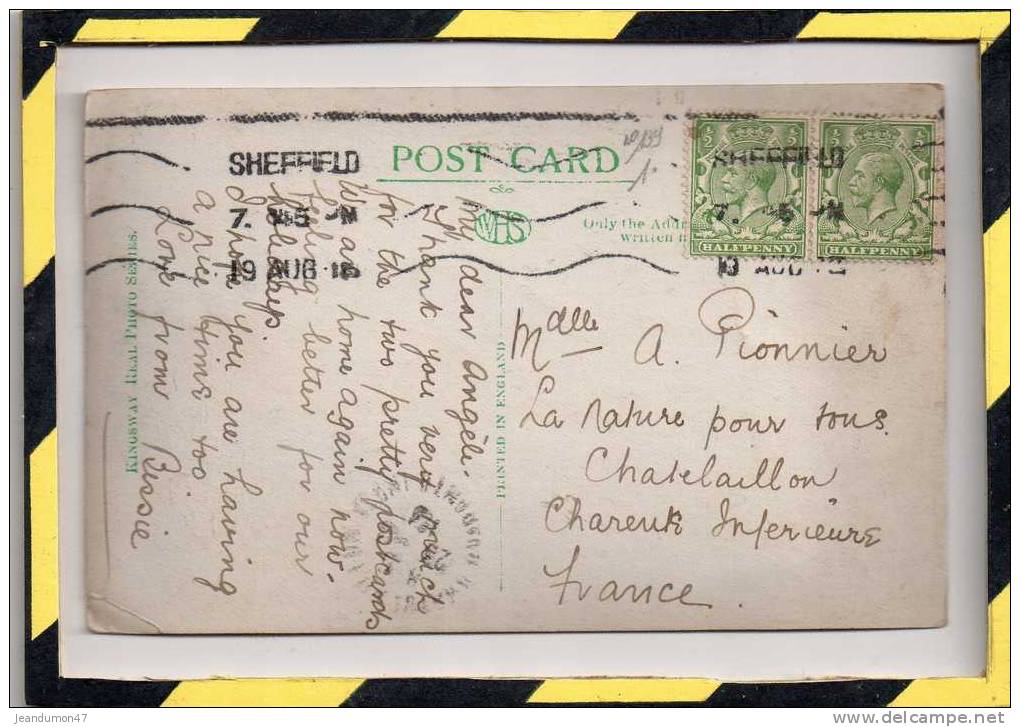 SHEFFIELD
19 AUG
POST CARD
WHS
Only the Addr
written
½ ½
HALFPENNY
½ ½
HALFPENNY
SHEFFIELD
AUG
KINGSWAY REAL PHOTO SERIES.
PRINTED IN ENGLAND
My dear Angèle.
Thank you very much
for the two pretty postcards
We are home again now.
feeling better for our
holidays.
I hope you are having
a nice time too
Love from Bissie
Mdlle A. Pionnier
La Nature pour tous.
Chatelaillon
Charente Inferieure
France.
jeandumon47
www.delcampe.net